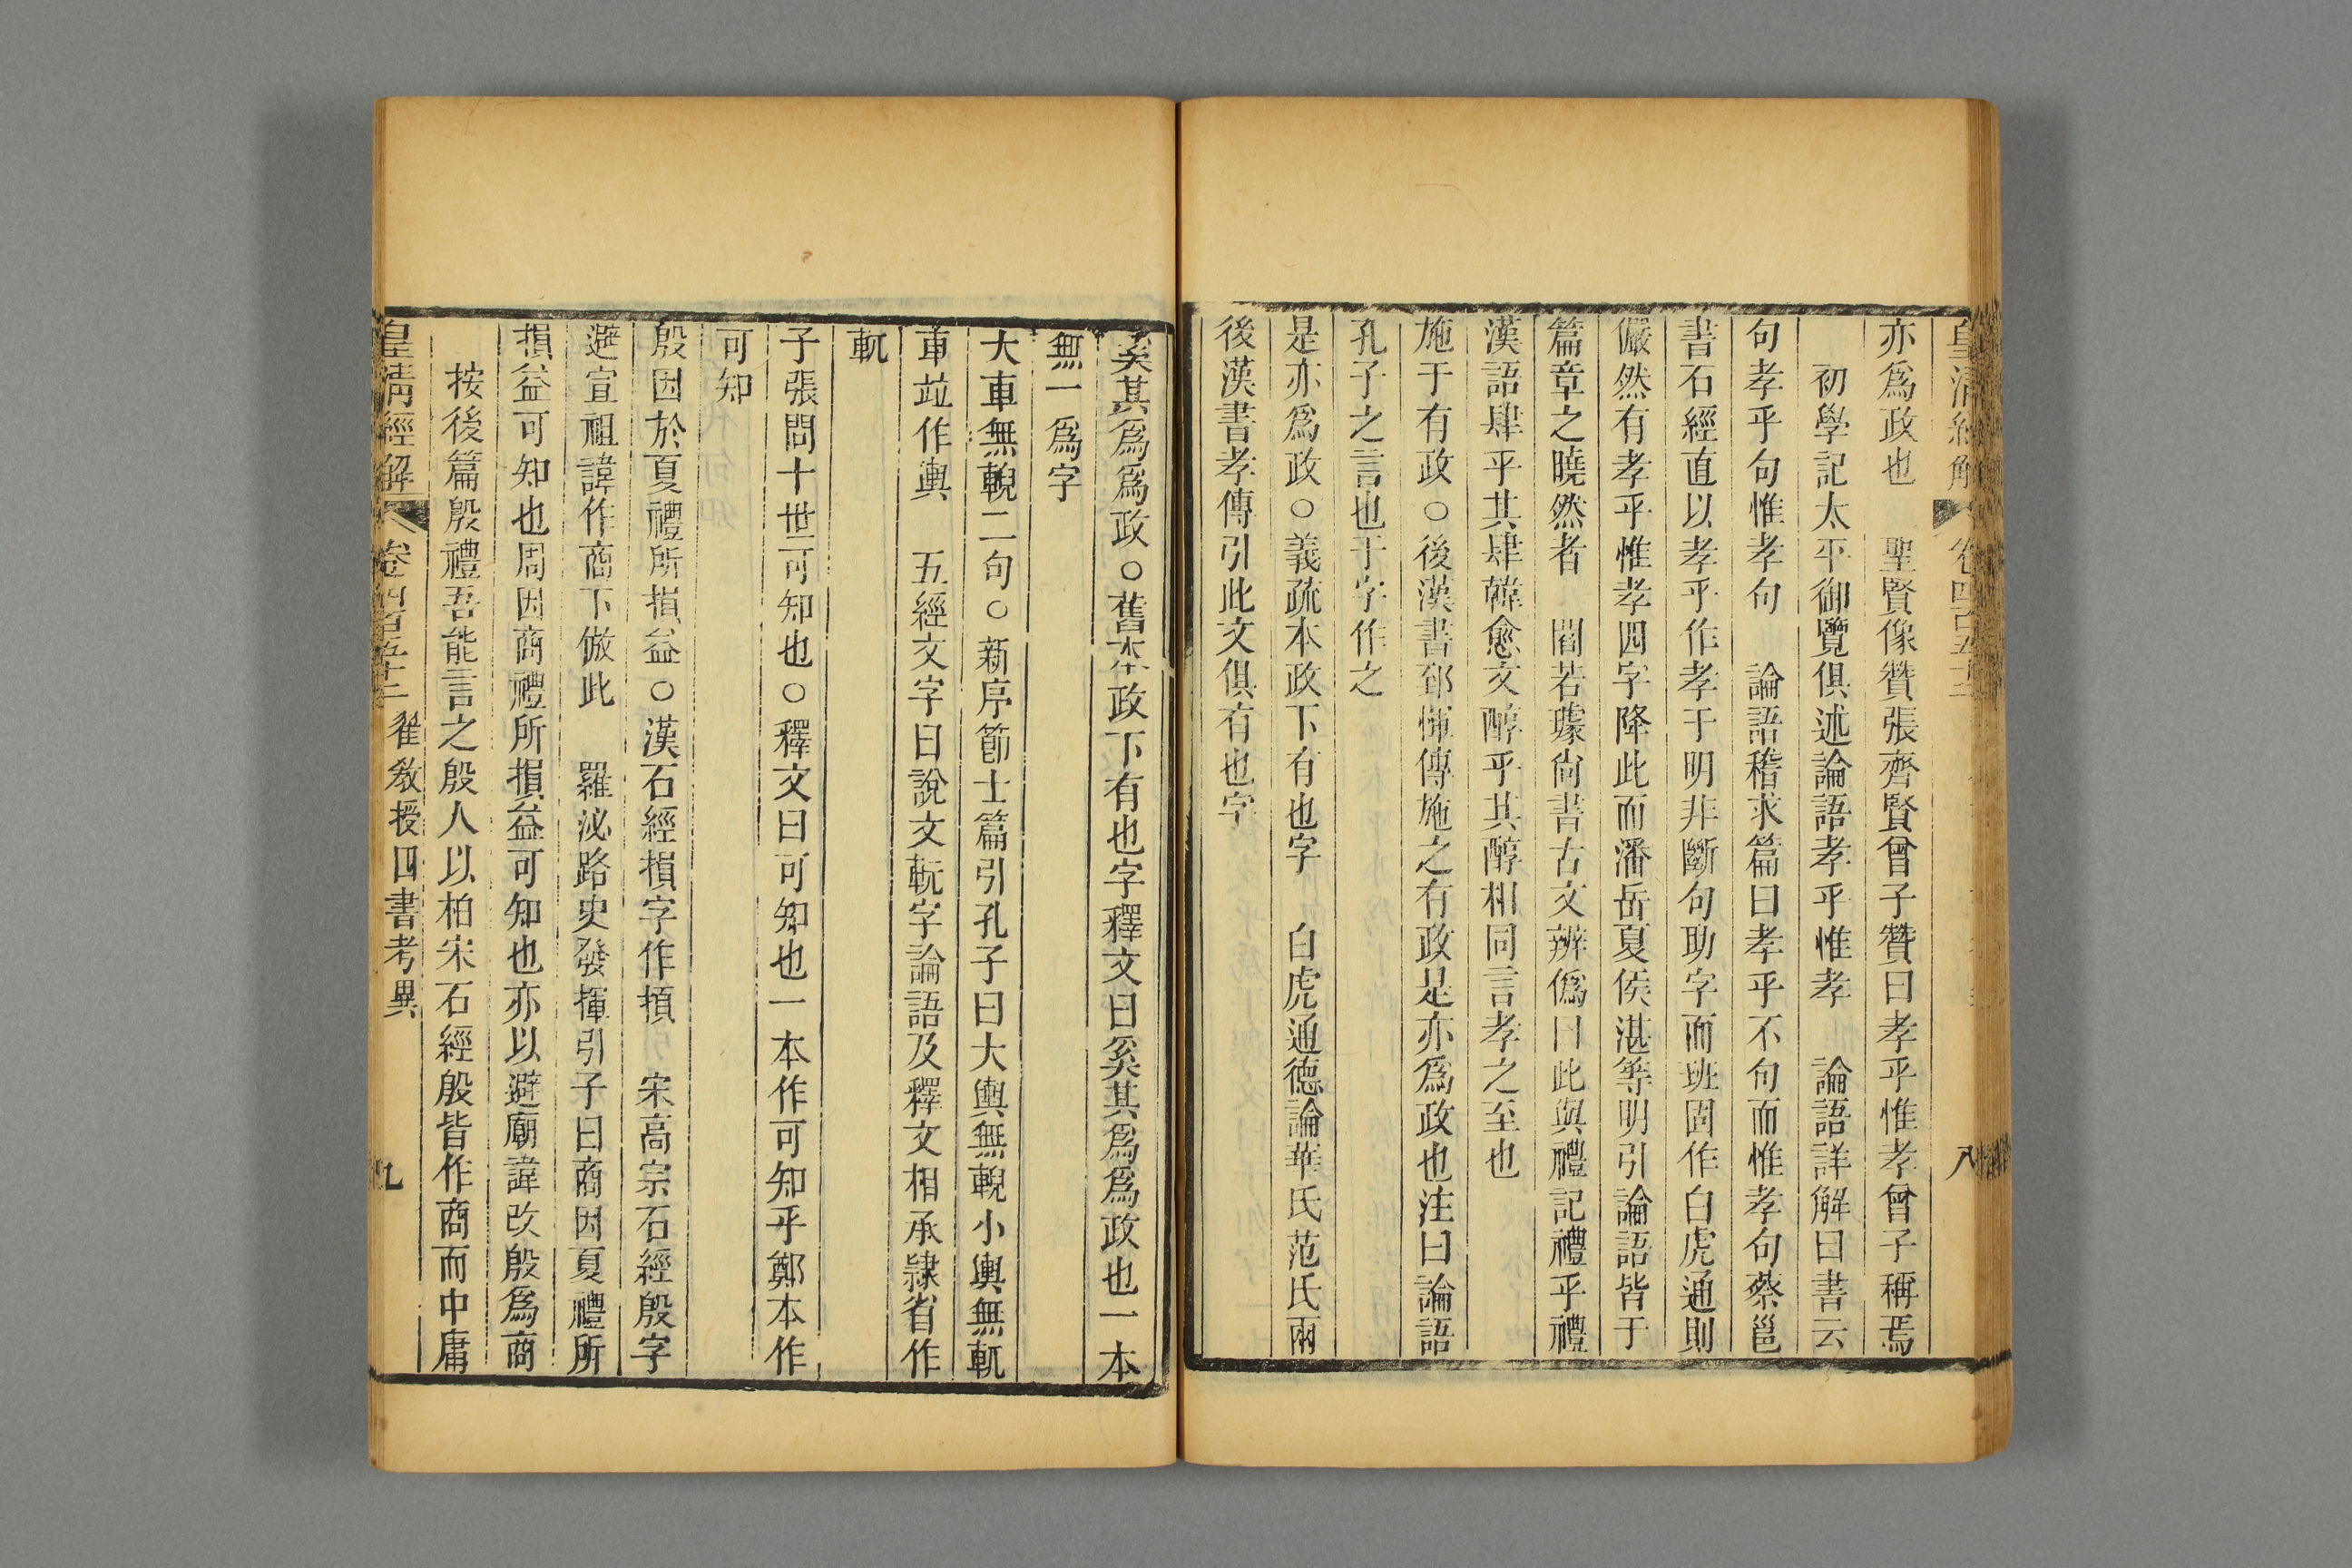 皇清經解
八
亦爲政也　聖賢像贊張齊賢曾子贊曰孝乎惟孝曾子稱焉
初學記太平御覽俱述論語孝乎惟孝　論語詳解曰書云
句孝乎句惟孝句　論語稽求篇曰孝乎不句而惟孝句蔡邕
書石經直以孝乎作孝于明非斷句助字而班固作白虎通則
儼然有孝乎惟孝四字降此而潘岳夏侯湛等明引論語皆于
篇章之曉然者　閻若璩尚書古文辨僞曰此與禮記禮乎禮
漢語肆乎其肆韓愈文醇乎其醇相同言孝之至也
施于有政○後漢書郅惲傳施之有政是亦爲政也注曰論語
孔子之言也于字作之
是亦爲政○義疏本政下有也字　白虎通德論華氏范氏兩
後漢書孝傳引此文俱有也字
奚其爲爲政○舊本政下有也字釋文曰奚其爲爲政也一本
無一爲字
大車無輗二句○新序節士篇引孔子曰大輿無輗小輿無軏
車竝作輿　五經文字曰說文軏字論語及釋文相承隸省作
軏
子張問十世可知也○釋文曰可知也一本作可知乎鄭本作
可知
殷因於夏禮所損益○漢石經損字作損　宋高宗石經殷字
避宣祖諱作商下倣此　羅泌路史發揮引子曰商因夏禮所
損益可知也周因商禮所損益可知也亦以避廟諱改殷爲商
按後篇殷禮吾能言之殷人以柏宋石經殷皆作商而中庸
皇清經解　卷四百五十二　翟教授四書考異
九